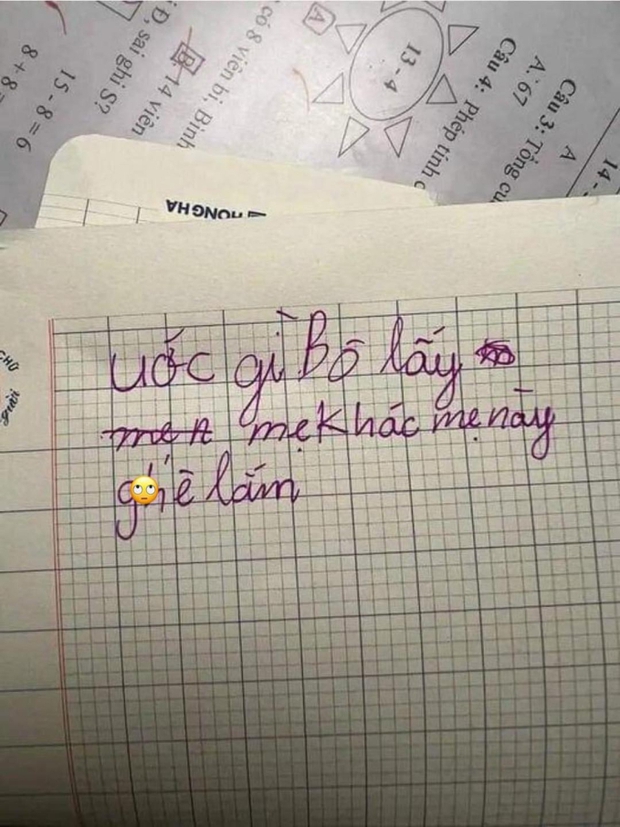 8 + 8 =
15 - 8 = 6
Đ, sai ghi S?
B. 14 viên
có 8 viên bi, Bình
A
13 - 4
Câu 4: Phép tính
A. 67
Câu 3: Tổng
A
14 -
HONG HA
CHỮ
người
ước gì Bố lấy
mẹ khác mẹ này
lắm